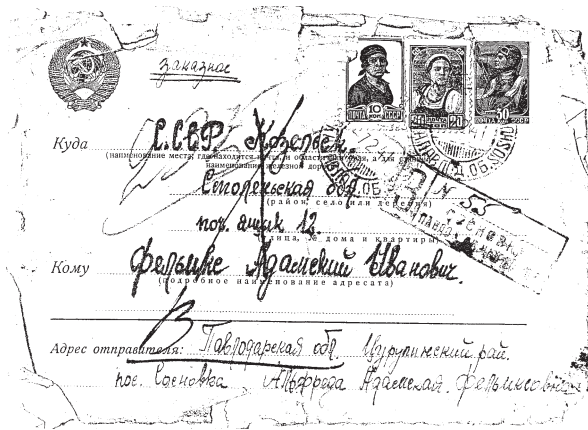 заказное
ПОЧТА 10 КОП СССР
20
ПОЧТА СССР
Куда С.С.С.Р. Козельск.
(наименование места, где находится почта, и области или края, а для станции наименование железной дороги)
Смоленская обл.
(район, село или деревня)
поч. ящик 12.
(улица, № дома и квартиры)
Кому Фельикс Адамский Иванович.
(подробное наименование адресата)
Адрес отправителя: Павлодарская обл. Цурупинский рай.
пос. Сосновка Альфреда Адамская Фельиксовна